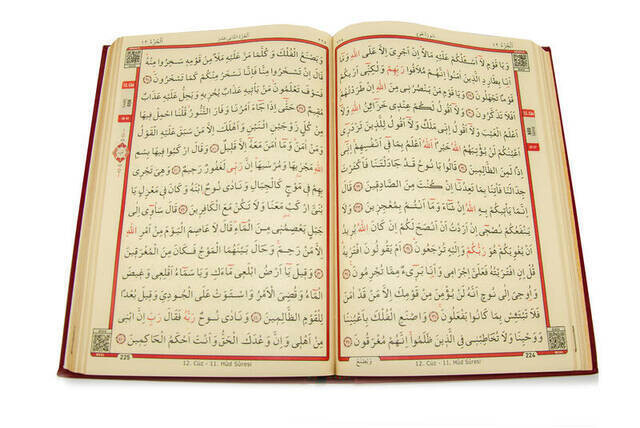 اَلْجُزْءُ ١٢
وَيَا قَوْمِ لَٓا اَسْـَٔلُكُمْ عَلَيْهِ مَالًا اِنْ اَجْرِيَ اِلَّا عَلَى اللّٰهِ وَمَٓا
اَنَا۬ بِطَارِدِ الَّذ۪ينَ اٰمَنُوا اِنَّهُمْ مُلَاقُوا رَبِّهِمْ وَلٰكِنّ۪ٓي اَرٰيكُمْ
قَوْمًا تَجْهَلُونَ ﴿٢٩﴾ وَيَا قَوْمِ مَنْ يَنْصُرُن۪ي مِنَ اللّٰهِ اِنْ طَرَدْتُهُمْ
اَفَلَا تَذَكَّرُونَ ﴿٣٠﴾ وَلَٓا اَقُولُ لَكُمْ عِنْد۪ي خَزَٓائِنُ اللّٰهِ وَلَٓا
اَعْلَمُ الْغَيْبَ وَلَٓا اَقُولُ اِنّ۪ي مَلَكٌ وَلَٓا اَقُولُ لِلَّذ۪ينَ تَزْدَر۪ٓي
اَعْيُنُكُمْ لَنْ يُؤْتِيَهُمُ اللّٰهُ خَيْرًا اَللّٰهُ اَعْلَمُ بِمَا ف۪ٓي اَنْفُسِهِمْ اِنّ۪ٓي
اِذًا لَمِنَ الظَّالِم۪ينَ ﴿٣١﴾ قَالُوا يَا نُوحُ قَدْ جَادَلْتَنَا فَاَكْثَرْتَ
جِدَالَنَا فَأْتِنَا بِمَا تَعِدُنَٓا اِنْ كُنْتَ مِنَ الصَّادِق۪ينَ ﴿٣٢﴾ قَالَ
اِنَّمَا يَأْت۪يكُمْ بِهِ اللّٰهُ اِنْ شَٓاءَ وَمَٓا اَنْتُمْ بِمُعْجِز۪ينَ ﴿٣٣﴾ وَلَا
يَنْفَعُكُمْ نُصْح۪ٓي اِنْ اَرَدْتُ اَنْ اَنْصَحَ لَكُمْ اِنْ كَانَ اللّٰهُ يُر۪يدُ
اَنْ يُغْوِيَكُمْ هُوَ رَبُّكُمْ وَاِلَيْهِ تُرْجَعُونَ ﴿٣٤﴾ اَمْ يَقُولُونَ افْتَرٰيهُ
قُلْ اِنِ افْتَرَيْتُهُ فَعَلَيَّ اِجْرَام۪ي وَاَنَا۬ بَر۪ٓيءٌ مِمَّا تُجْرِمُونَ ﴿٣٥﴾
وَاُو۫حِيَ اِلٰى نُوحٍ اَنَّهُ لَنْ يُؤْمِنَ مِنْ قَوْمِكَ اِلَّا مَنْ قَدْ اٰمَنَ
فَلَا تَبْتَئِسْ بِمَا كَانُوا يَفْعَلُونَ ﴿٣٦﴾ وَاصْنَعِ الْفُلْكَ بِاَعْيُنِنَا
وَوَحْيِنَا وَلَا تُخَاطِبْن۪ي فِي الَّذ۪ينَ ظَلَمُوا اِنَّهُمْ مُغْرَقُونَ ﴿٣٧﴾
وَيَصْنَعُ
12. Cüz - 11. Hûd Sûresi
224
اَلْجُزْءُ ١٢
وَيَصْنَعُ الْفُلْكَ وَكُلَّمَا مَرَّ عَلَيْهِ مَلَأٌ مِنْ قَوْمِه۪ سَخِرُوا مِنْهُ
قَالَ اِنْ تَسْخَرُوا مِنَّا فَاِنَّا نَسْخَرُ مِنْكُمْ كَمَا تَسْخَرُونَ ﴿٣٨﴾
فَسَوْفَ تَعْلَمُونَ مَنْ يَأْت۪يهِ عَذَابٌ يُخْز۪يهِ وَيَحِلُّ عَلَيْهِ عَذَابٌ
مُق۪يمٌ ﴿٣٩﴾ حَتّٰٓى اِذَا جَٓاءَ اَمْرُنَا وَفَارَ التَّنُّورُ قُلْنَا احْمِلْ ف۪يهَا
مِنْ كُلٍّ زَوْجَيْنِ اثْنَيْنِ وَاَهْلَكَ اِلَّا مَنْ سَبَقَ عَلَيْهِ الْقَوْلُ
وَمَنْ اٰمَنَ وَمَٓا اٰمَنَ مَعَهُٓ اِلَّا قَل۪يلٌ ﴿٤٠﴾ وَقَالَ ارْكَبُوا ف۪يهَا بِسْمِ
اللّٰهِ مَجْرٰۭيهَا وَمُرْسٰيهَا اِنَّ رَبّ۪ي لَغَفُورٌ رَح۪يمٌ ﴿٤١﴾ وَهِيَ تَجْر۪ي
بِهِمْ ف۪ي مَوْجٍ كَالْجِبَالِ وَنَادٰى نُوحٌ ابْنَهُ وَكَانَ ف۪ي مَعْزِلٍ يَا
بُنَيَّ ارْكَبْ مَعَنَا وَلَا تَكُنْ مَعَ الْكَافِر۪ينَ ﴿٤٢﴾ قَالَ سَاٰو۪ٓي اِلٰى
جَبَلٍ يَعْصِمُن۪ي مِنَ الْمَٓاءِ قَالَ لَا عَاصِمَ الْيَوْمَ مِنْ اَمْرِ اللّٰهِ
اِلَّا مَنْ رَحِمَ وَحَالَ بَيْنَهُمَا الْمَوْجُ فَكَانَ مِنَ الْمُغْرَق۪ينَ
﴿٤٣﴾ وَق۪يلَ يَٓا اَرْضُ ابْلَع۪ي مَٓاءَكِ وَيَا سَمَٓاءُ اَقْلِع۪ي وَغ۪يضَ
الْمَٓاءُ وَقُضِيَ الْاَمْرُ وَاسْتَوَتْ عَلَى الْجُودِيِّ وَق۪يلَ بُعْدًا
لِلْقَوْمِ الظَّالِم۪ينَ ﴿٤٤﴾ وَنَادٰى نُوحٌ رَبَّهُ فَقَالَ رَبِّ اِنَّ ابْن۪ي
مِنْ اَهْل۪ي وَاِنَّ وَعْدَكَ الْحَقُّ وَاَنْتَ اَحْكَمُ الْحَاكِم۪ينَ ﴿٤٥﴾
12. Cüz - 11. Hûd Sûresi
225